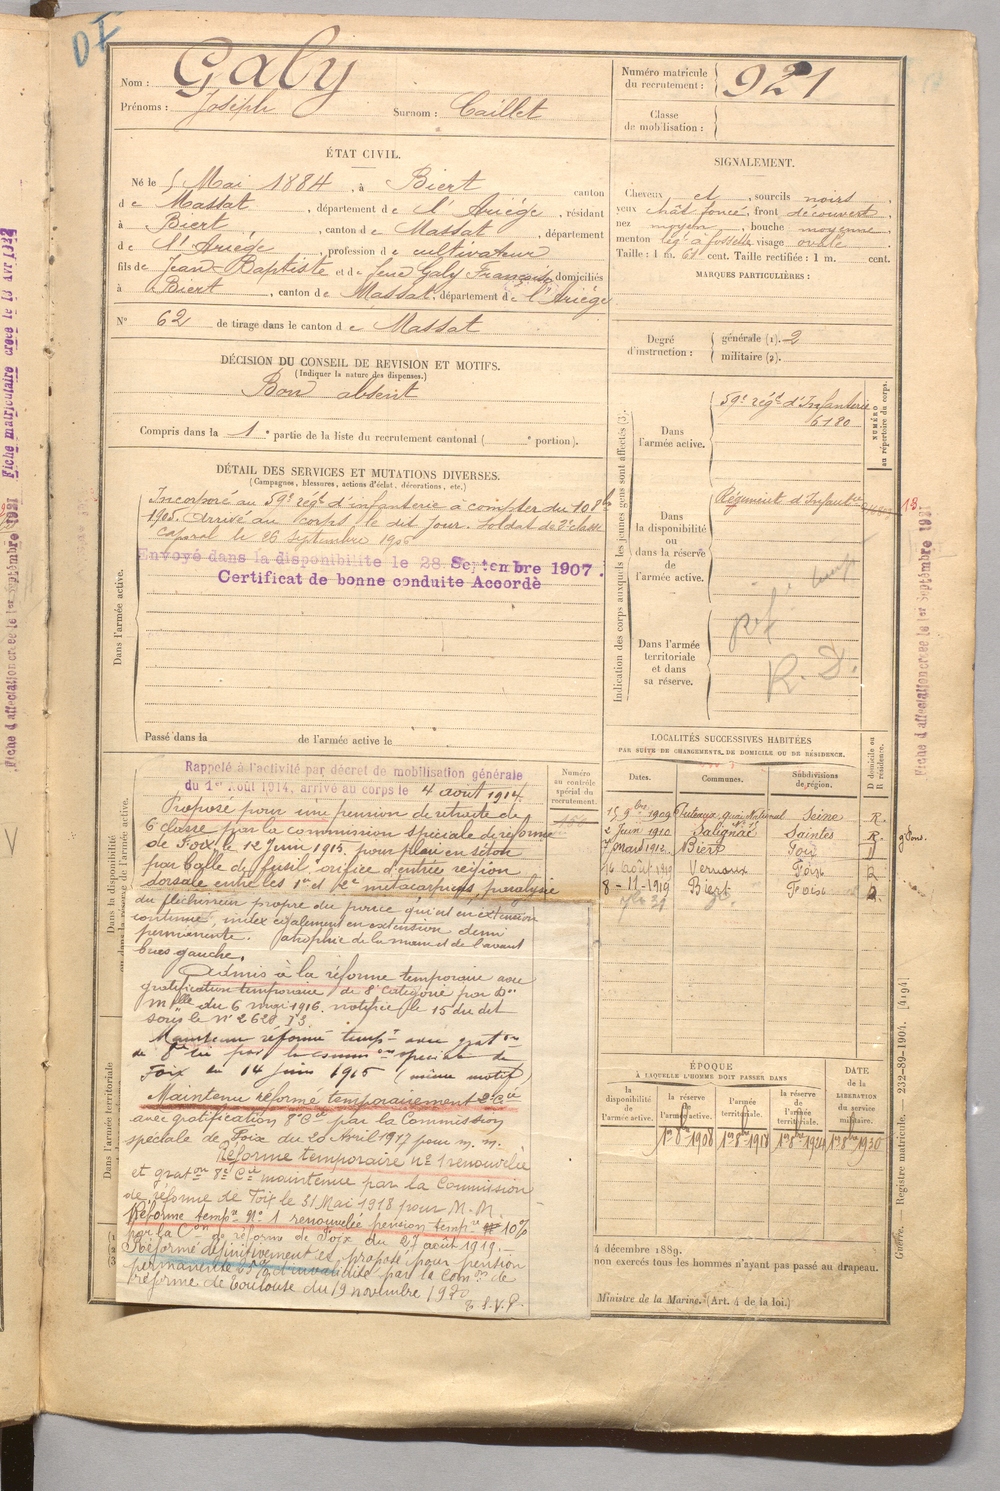 DI
Nom : Galy
Prénoms : Joseph Surnom : Caillet
Numéro matricule du recrutement : 921
Classe de mobilisation :
ÉTAT CIVIL.
Né le 5 Mai 1884, à Biert canton
de Massat, département de l'Ariège, résidant
à Biert, canton de Massat, département
de l'Ariège, profession de cultivateur
fils de Jean-Baptiste et de feue Galy Françoise, domiciliés
à Biert, canton de Massat, département de l'Ariège
N° 62 de tirage dans le canton de Massat
SIGNALEMENT.
Cheveux et, sourcils noirs,
yeux chât foncé, front découvert,
nez moyen, bouche moyenne,
menton lég' à fossette, visage ovale
Taille : 1 m. 61 cent. Taille rectifiée : 1 m. cent.
MARQUES PARTICULIÈRES :
Degré d'instruction : générale (1). 2
militaire (2).
DÉCISION DU CONSEIL DE REVISION ET MOTIFS.
(Indiquer la nature des dispenses.)
Bon absent
Compris dans la 1e partie de la liste du recrutement cantonal ( e portion).
DÉTAIL DES SERVICES ET MUTATIONS DIVERSES.
(Campagnes, blessures, actions d'éclat, décorations, etc.)
Dans l'armée active.
Incorporé au 59e régt d'infanterie à compter du 10 8bre
1905. Arrivé au corps le dit jour. Soldat de 2e classe
Caporal le 26 Septembre 1906
Envoyé dans la disponibilité le 28 Septembre 1907.
Certificat de bonne conduite Accordé
Passé dans la de l'armée active le
Indication des corps auxquels les jeunes gens sont affectés (3).
Dans l'armée active.
59e régt d'Infanterie
6180
NUMÉRO au répertoire du corps.
Dans la disponibilité ou dans la réserve de l'armée active.
Régiment d'Infante
Dans l'armée territoriale et dans sa réserve.
R. D.
LOCALITÉS SUCCESSIVES HABITÉES
PAR SUITE DE CHANGEMENTS DE DOMICILE OU DE RÉSIDENCE.
Dates. Communes. Subdivisions de région. D domicile ou R résidence.
15 9bre 1909 Puteaux, quai National Seine R.
2 Juin 1910 Salignac Saintes R.
7 Mars 1912 Biert Foix D
16 août 1919 Vernaux Foix R
8-11-1919 Biert Foix D
Dans la disponibilité ou dans la réserve de l'armée active.
Numéro au contrôle spécial du recrutement.
Rappelé à l'activité par décret de mobilisation générale
du 1er Août 1914, arrivé au corps le 4 août 1914.
Proposé pour une pension de retraite de
6e classe par la commission spéciale de réforme
de Foix le 12 Juin 1915. pour plaie en séton
par balle de fusil, orifice d'entrée région
dorsale entre les 1er et 2e métacarpiens, paralysie
du fléchisseur propre du pouce qui est en extension
continue, index également en extension demi
permanente. atrophie de la main et de l'avant
bras gauche.
Admis à la réforme temporaire avec
gratification temporaire de 8e catégorie par Don
Mlle du 6 mai 1916 notifiée le 15 du dit
sous le N° 2620 P3
Maintenu réformé tempre avec graton
de 8e cie par la common spéciale de
Foix du 14 Juin 1915 (même motif)
Maintenu réformé temporairement 2e Cie
avec gratification 8e Cie par la Commission
spéciale de Foix du 20 Avril 1917 pour m. m.
Réforme temporaire n° 1 renouvelée
et graton 8e Cie maintenue par la Commission
de réforme de Foix le 31 Mai 1918 pour M. M.
Réforme tempre N° 1 renouvelée pension tempre 10%
par la Con de réforme de Foix du 27 août 1919.
Réformé définitivement et proposé pour pension
permanente d'invalidité par la Comon de
réforme de Toulouse du 19 novembre 1920
T. S. V. P.
Dans l'armée territoriale
ÉPOQUE
À LAQUELLE L'HOMME DOIT PASSER DANS
la disponibilité de l'armée active. la réserve de l'armée active. l'armée territoriale. la réserve de l'armée territoriale.
DATE de la LIBÉRATION du service militaire.
1er 8bre 1908 1er 8bre 1918 1er 8bre 1924 1er 8bre 1930
4 décembre 1889.
non exercés tous les hommes n'ayant pas passé au drapeau.
Ministre de la Marine. (Art. 4 de la loi.)
Guerre. — Registre matricule. — 232-89-1904. [4194]
Fiche d'affectation créée le 1er Septembre 1921
Fiche d'affectation créée le 1er Septembre 1921
Fiche matriculaire créée le